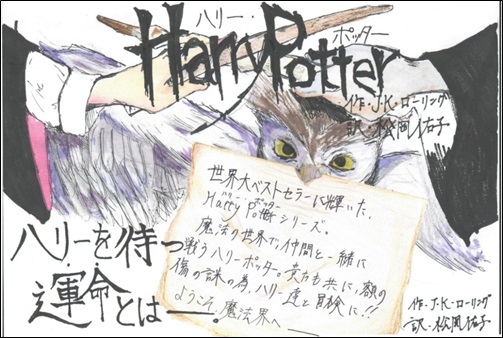 ハリー・
ポッター
Harry Potter
作・J.K・ローリング
訳・松岡佑子
世界大ベストセラーに輝いた、
ハリー・ポッター
Harry Potterシリーズ。
魔法の世界で、仲間と一緒に
戦うハリーポッター。貴方も共に、額の
傷の謎の為、ハリー達と冒険に!!
ようこそ、魔法界へ――
ハリーを待つ
運命とは―。
作・J.K・ローリング
訳・松岡佑子